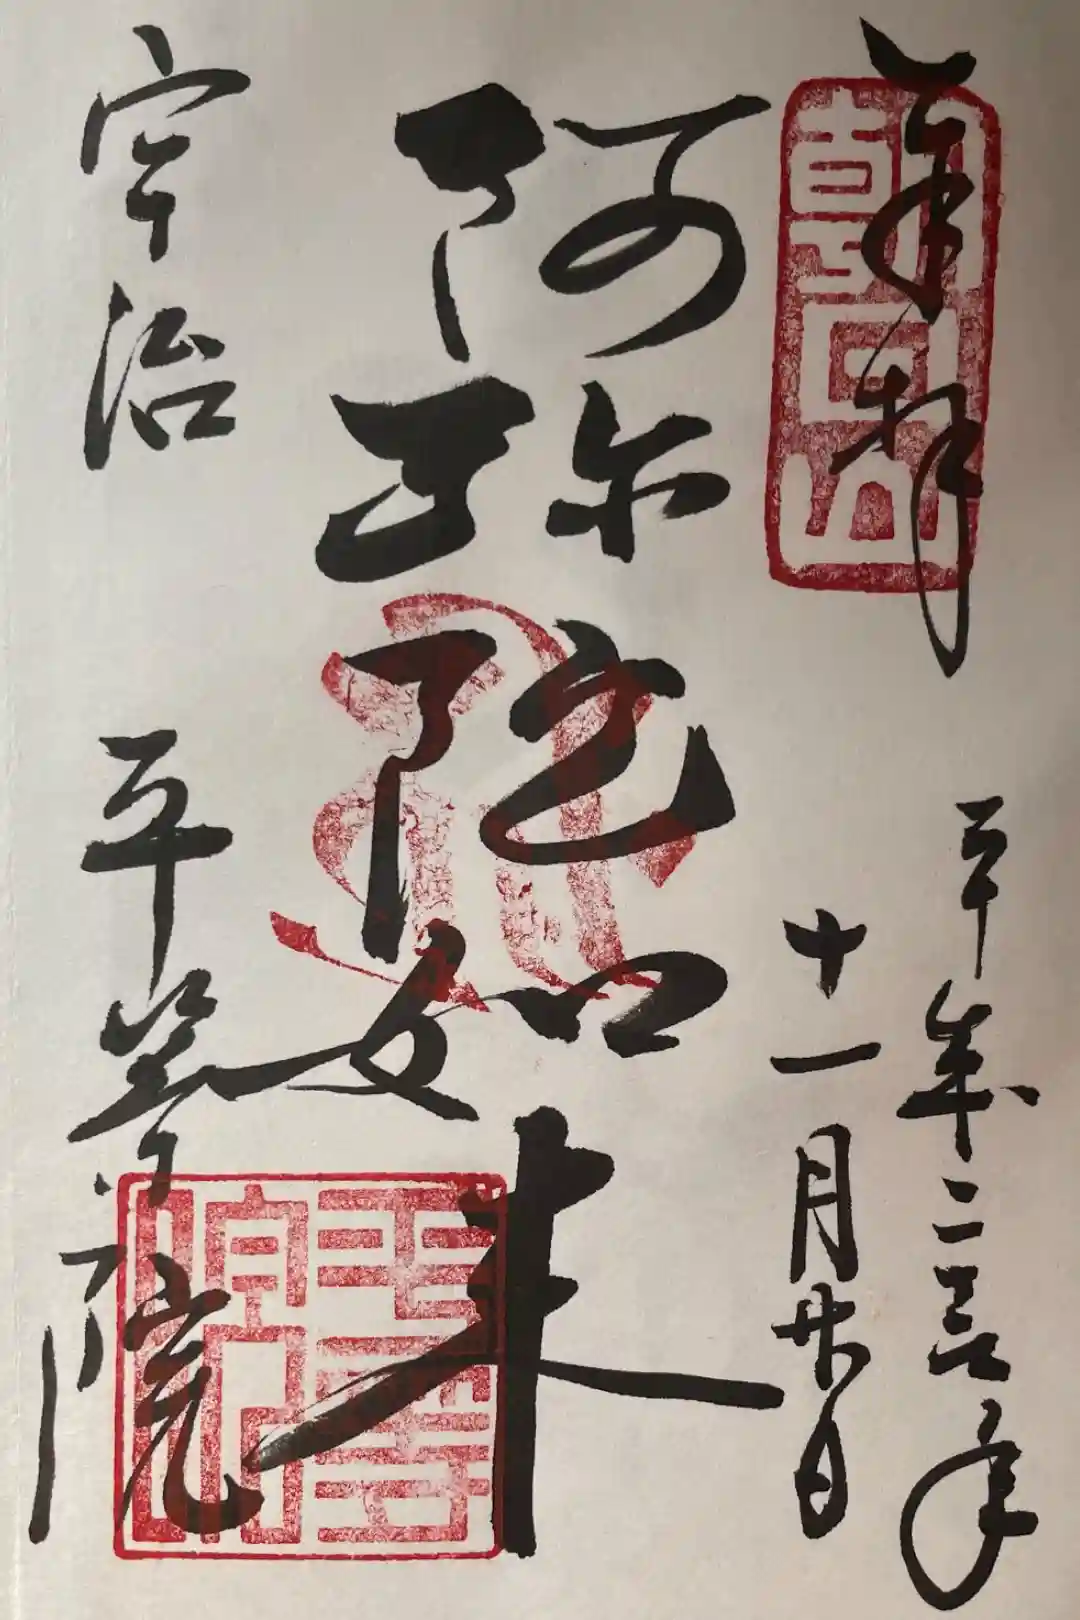 奉拝
朝日山
平成二三年
十一月廿日
阿弥陀如来
宇治 平等院
平等
院印